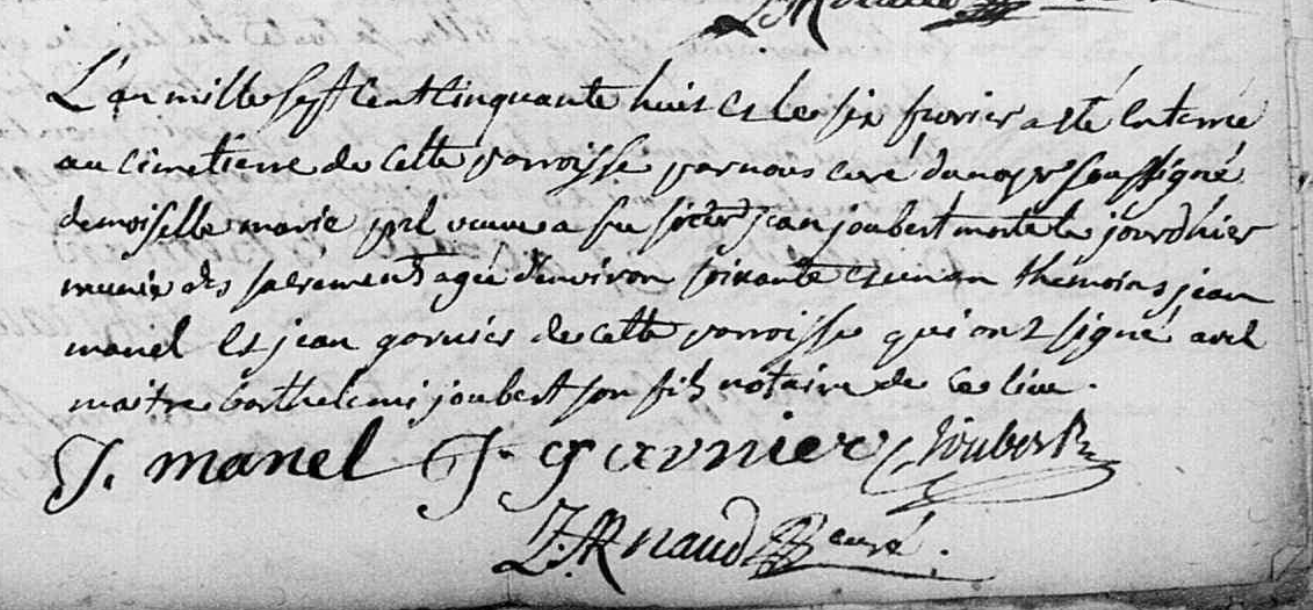 L'an mille sept cent cinquante huit et le six fevrier a eté enterrée
au cimetierre de cette parroisse par nous curé soussigné
demoiselle marie veuve a feu jean joubert morte le jourdhier
munie des sacrements agée d'environ soixante et un an themoins jean
manel et jean garnier de cette parroisse qui ont signé avec
maitre barthelemi joubert son fils notaire de ce lieu.
J. manel J. garnier Joubert
J. Arnaud curé.